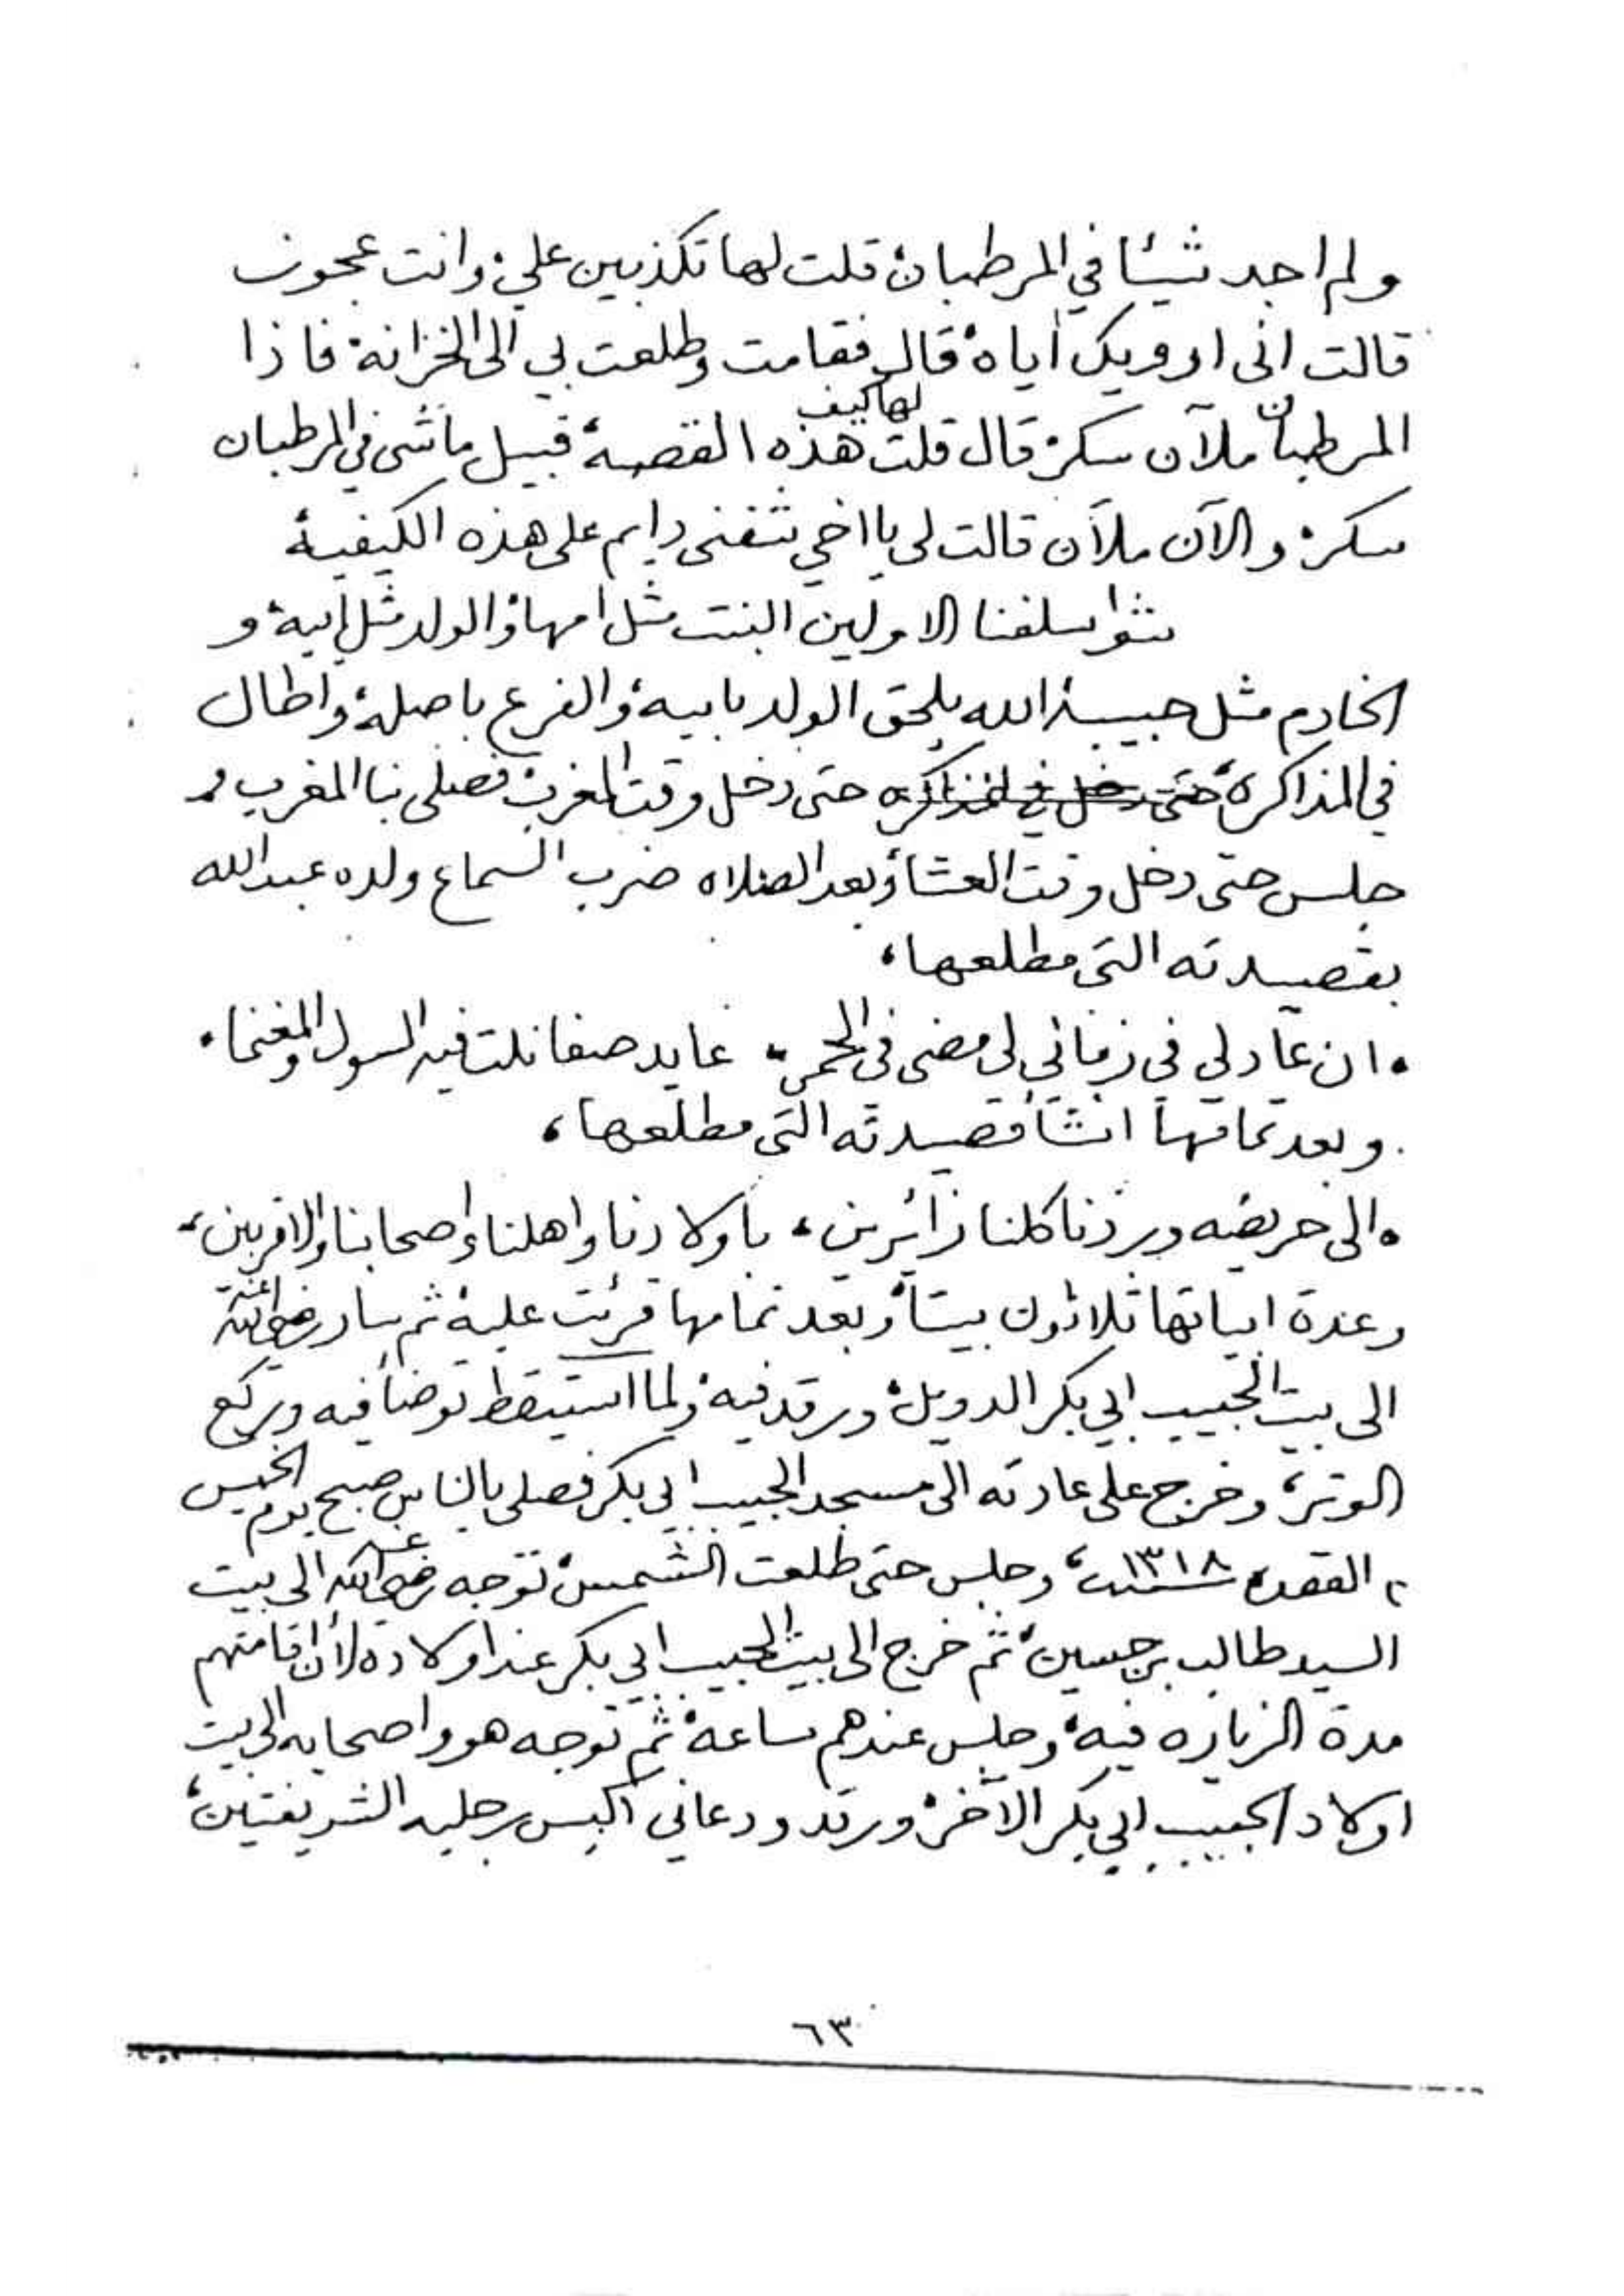 ولم اجد شيئا في المرطبان، قلت لها تكذبين علي، وانت عجوز،
قالت انى اروويك اياه، قال فقامت وطلعت بي الى الخزانة، فاذا
المرطبان ملآن سكر، قال قلت لها كيف هذه القصة، قبيل ماشى في المرطبان
سكر، والآن ملآن قالت لى يا اخي شفنى دايم على هذه الكيفية
شوا سلفنا الاولين البنت مثل امها، والولد مثل ابيه، و
الخادم مثل حبيبه، الله يلحق الولد بابيه، والفرع باصله، واطال
في المذاكرة، حتى دخل في المذاكره حتى دخل وقت المغرب، فصلى بنا المغرب، و
جلس حتى دخل وقت العشاء، وبعد الصلاه ضرب السماع ولده عبد الله
بقصيدته التى مطلعها،
ان عاد لي في زماني لى مضى في الحمى، عايد صفا نلت فيه السول والمغنما،
وبعد تمامها انشأ قصيدته التى مطلعها،
الى حريضه وردنا كلنا زائرين، باولادنا واهلنا، واصحابنا والاقربين،
وعدة ابياتها ثلاثون بيتا، وبعد تمامها قرئت عليه، ثم سار رضي الله عنه
الى بيت الحبيب ابي بكر الدويل، ورقد فيه، ولما استيقظ توضأ فيه وركع
الوتر، وخرج على عادته الى مسجد الحبيب ابي بكر فصلى بالناس صبح يوم الخميس
القعده سنة ١٣١٨، وجلس حتى طلعت الشمس، توجه رضي الله عنه الى بيت
السيد طالب بن حسين، ثم خرج الى بيت الحبيب ابي بكر عند اولاده، لأن اقامتهم
مدة الزياره فيه، وجلس عندهم ساعة، ثم توجه هو واصحابه الى بيت
اولاد الحبيب ابي بكر الآخر، ورقد ودعاني اكبس رجليه الشريفتين،
٦٣